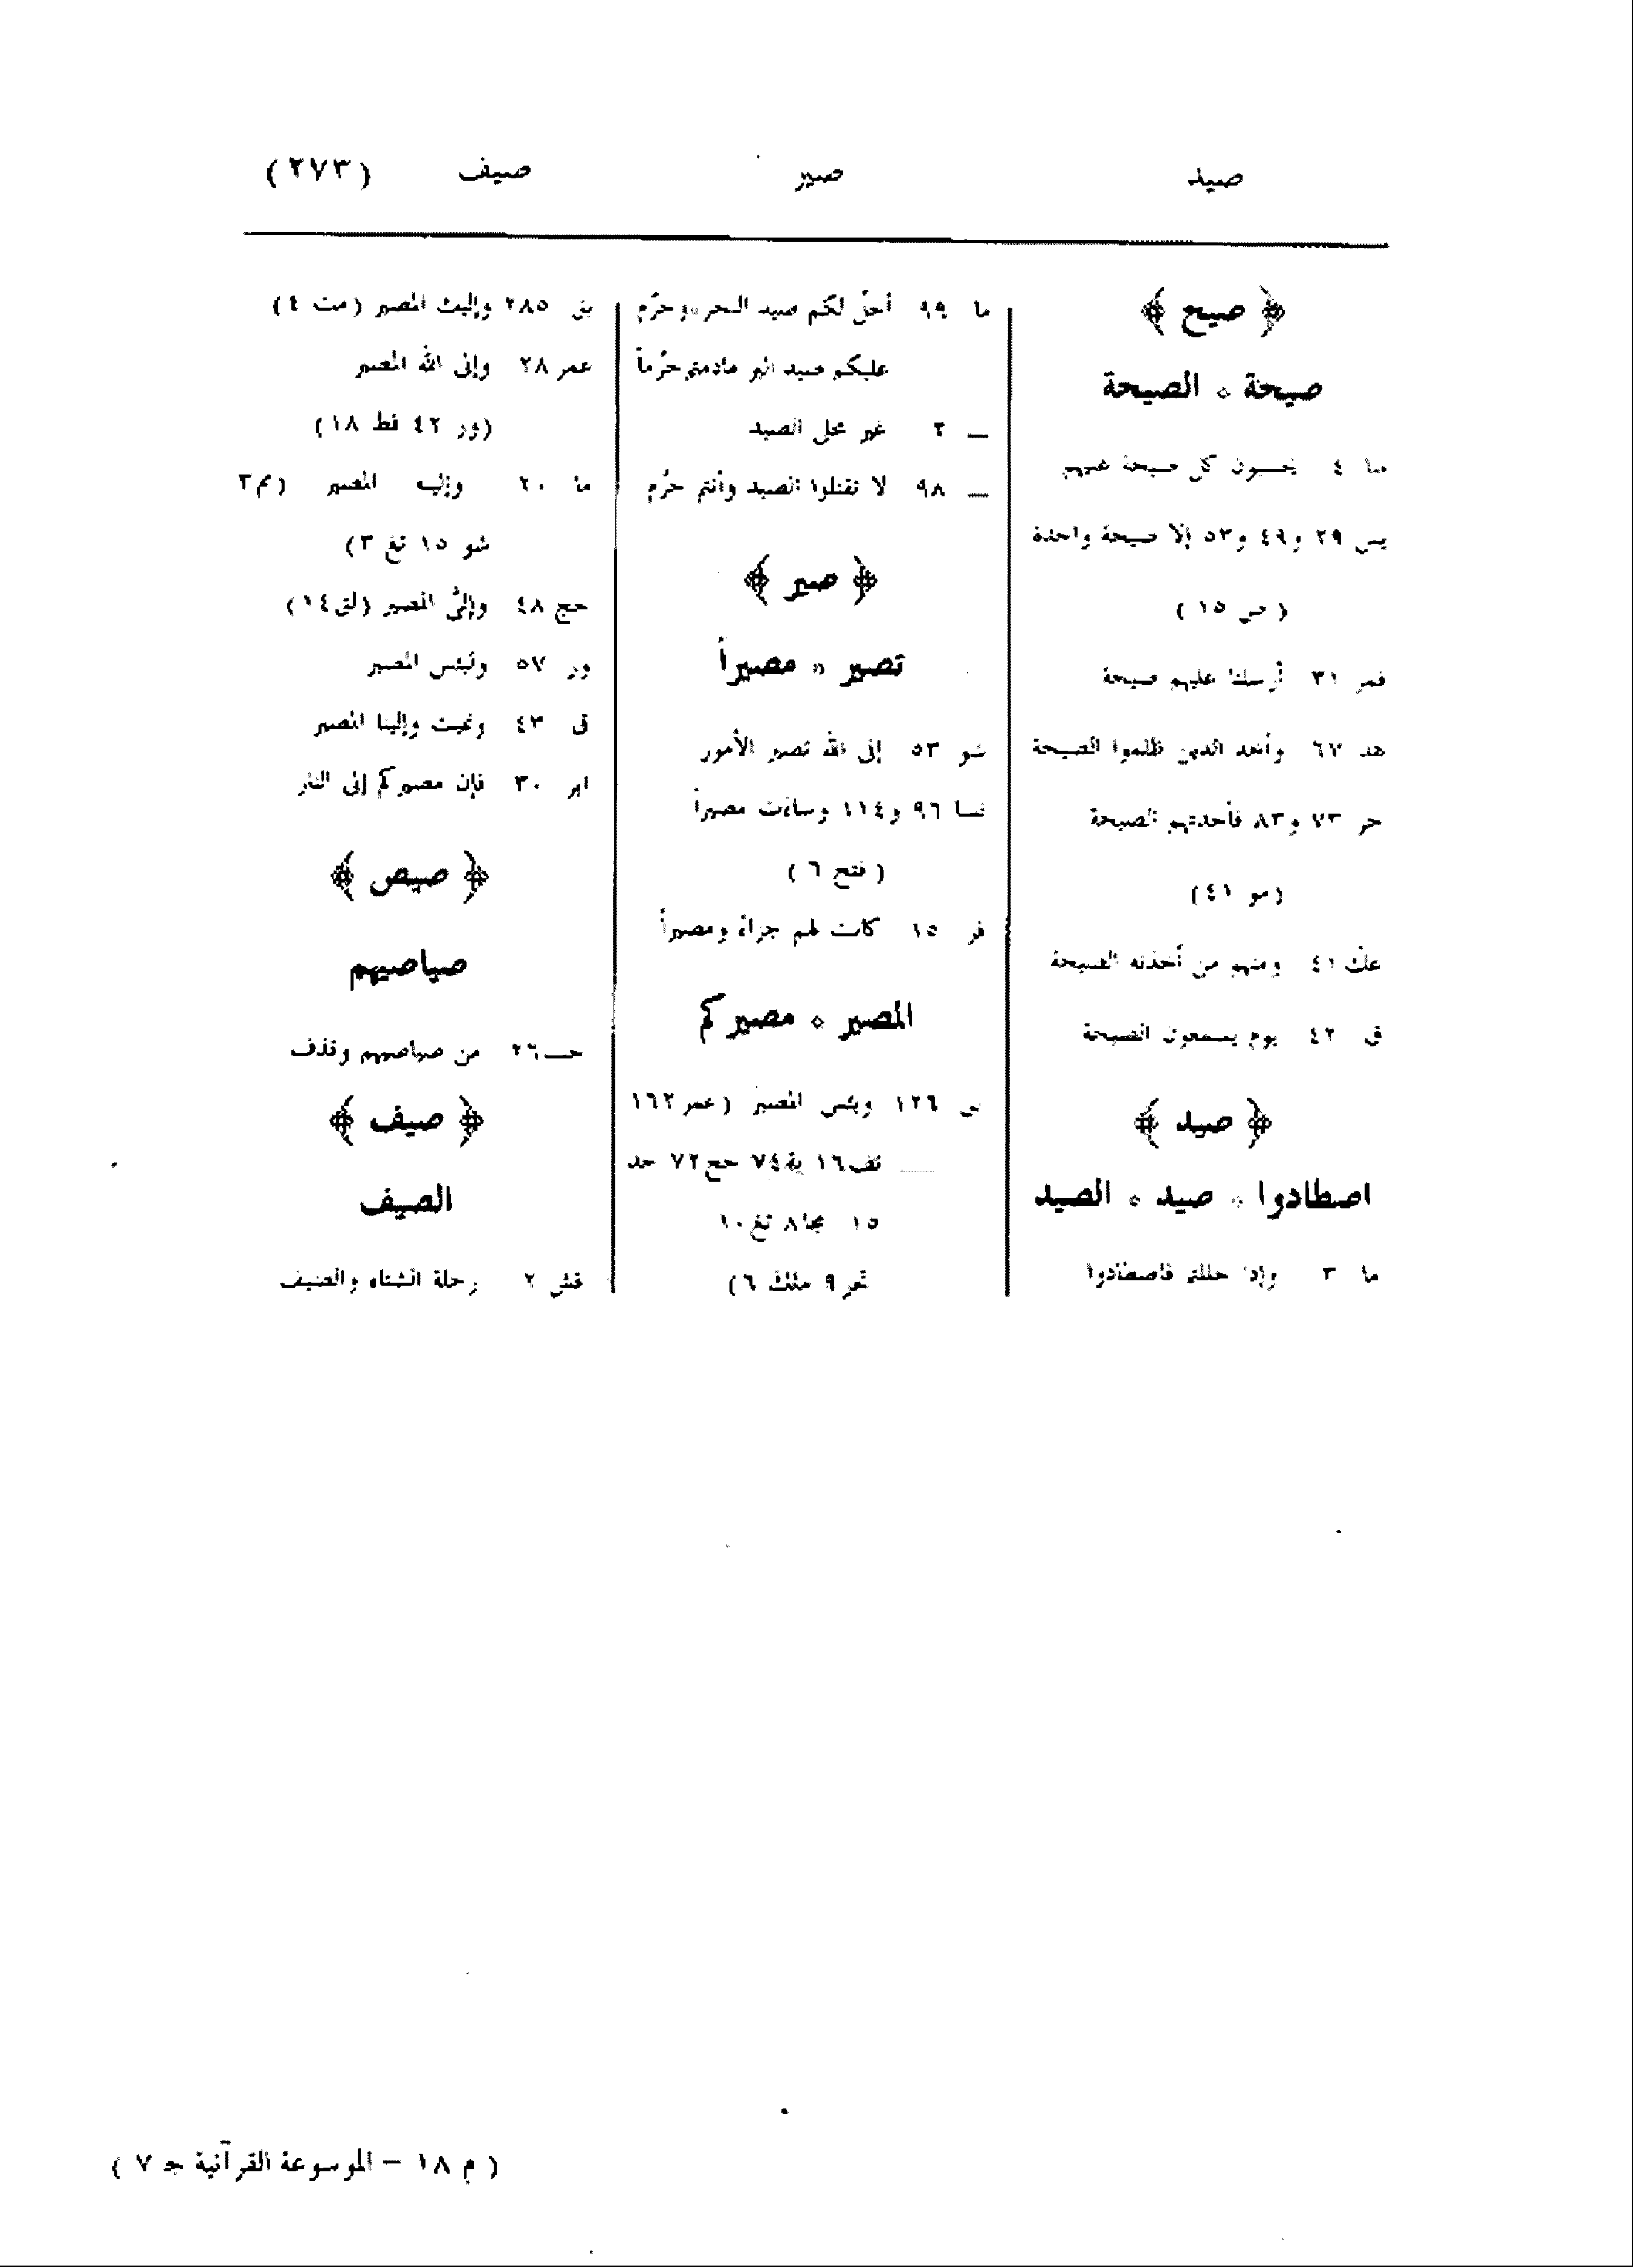 صيد صير صيف (٢٧٣)
﴿ صيح ﴾
صيحة * الصيحة
منا ٤ يحسبون كل صيحة عليهم
يس ٢٩ و٤٩ و٥٣ إلا صيحة واحدة
(ص ١٥)
قمر ٣١ أرسلنا عليهم صيحة
هد ٦٧ وأخذ الذين ظلموا الصيحة
حر ٧٣ و٨٣ فأخذتهم الصيحة
(مو ٤١)
عك ٤١ ومنهم من أخذته الصيحة
ق ٤٢ يوم يسمعون الصيحة
﴿ صيد ﴾
اصطادوا * صيد * الصيد
ما ٣ وإذا حللتم فاصطادوا
ما ٩٩ أحلّ لكم صيد البحر.. وحرّم
عليكم صيد البر مادمتم حرُماً
— ٢ غير محلى الصيد
— ٩٨ لا تقتلوا الصيد وأنتم حرُم
﴿ صير ﴾
تصير * مصيراً
شو ٥٣ إلى الله تصير الأمور
نسا ٩٦ و١١٤ وساءت مصيراً
(فتح ٦)
فر ١٥ كانت لهم جزاءً ومصيراً
المصير * مصيركم
١٢٦ وبئس المصير (عمر ١٦٢
نف١٦ ٧٤ حج٧٢ حد
١٥ مجا٨ تغ١٠
تحر٩ ملك ٦)
بق ٢٨٥ وإليك المصير (مت ٤)
عمر ٢٨ وإلى الله المصير
(ور ٤٢ فط ١٨)
ما ٢٠ وإليه المصير (م٣
شو ١٥ تغ ٣)
حج ٤٨ وإليّ المصير (لق١٤)
ور ٥٧ ولبئس المصير
ق ٤٣ ونميت وإلينا المصير
ابر ٣٠ فإن مصيركم إلى النار
﴿ صيص ﴾
صياصيهم
حـ٢٦ من صياصيهم وقذف
﴿ صيف ﴾
الصيف
قش ٢ رحلة الشتاء والصيف
(م ١٨ – الموسوعة القرآنية جـ ٧)